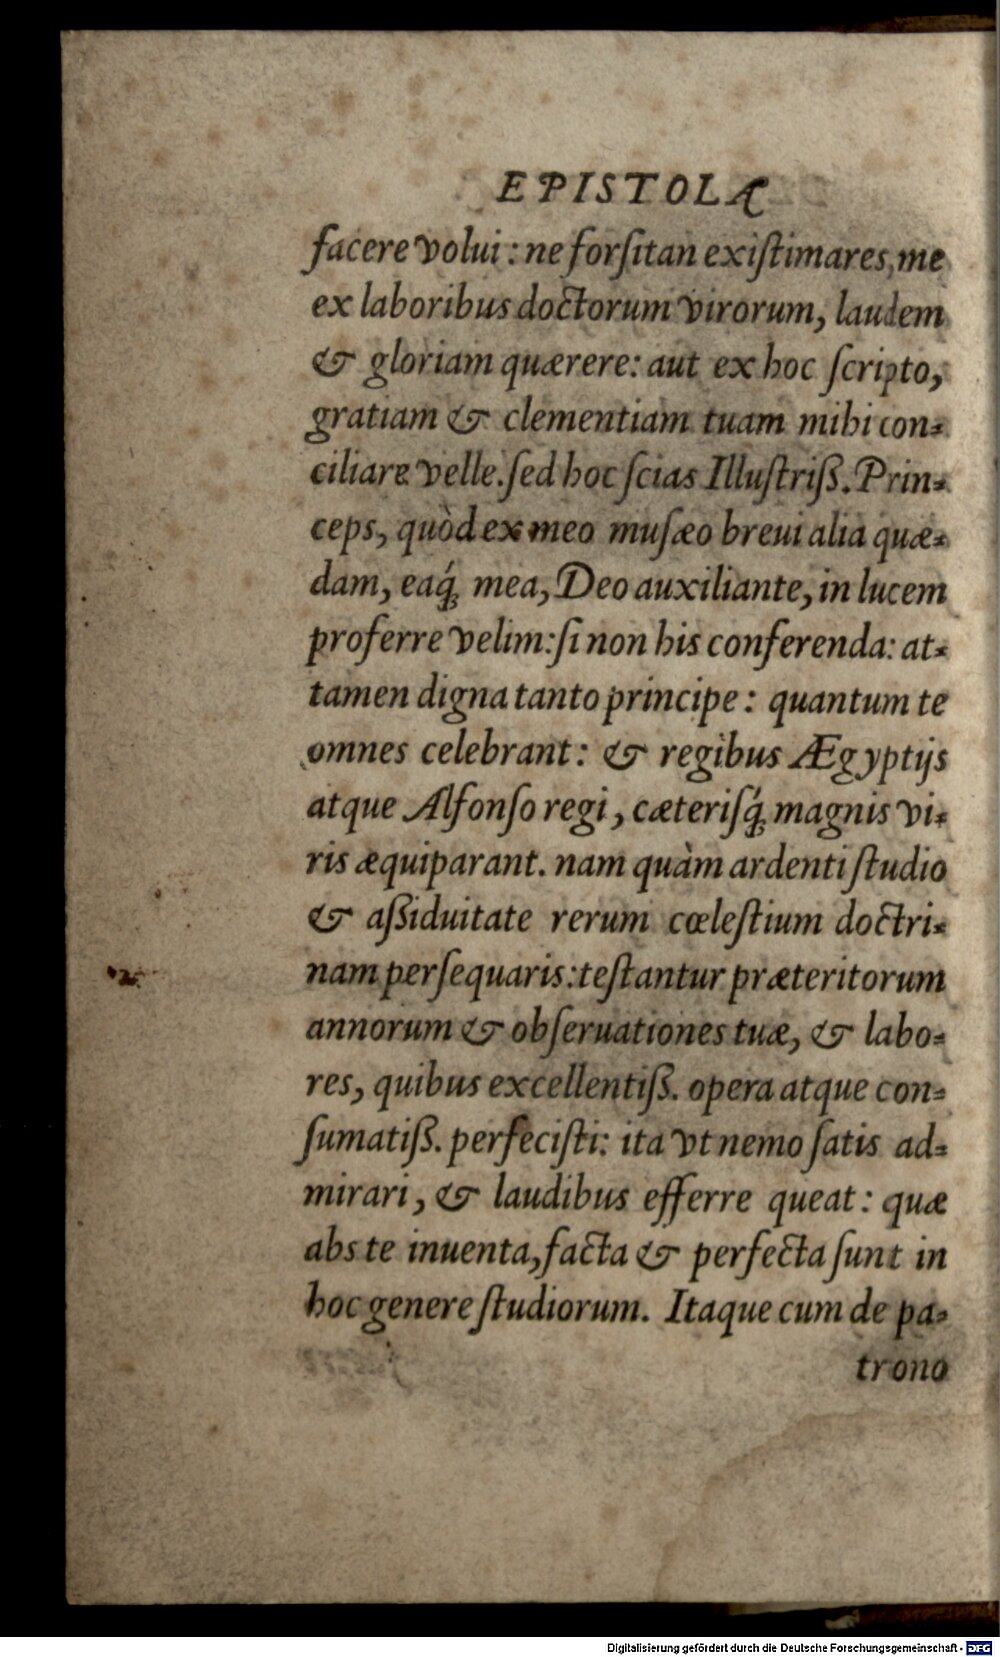 EPISTOLÆ
facere volui: ne forſitan exiſtimares, me
ex laboribus doctorum virorum, laudem
& gloriam quærere: aut ex hoc ſcripto,
gratiam & clementiam tuam mihi con-
ciliare velle. ſed hoc ſcias Illuſtriß. Prin-
ceps, quòd ex meo muſæo breui alia quæ-
dam, eaq́; mea, Deo auxiliante, in lucem
proferre velim: ſi non his conferenda: at-
tamen digna tanto principe: quantum te
omnes celebrant: & regibus Ægyptijs
atque Alfonſo regi, cæteriſq́; magnis vi-
ris æquiparant. nam quàm ardenti ſtudio
& aßiduitate rerum cœleſtium doctri-
nam perſequaris: teſtantur præteritorum
annorum & obſeruationes tuæ, & labo-
res, quibus excellentiß. opera atque con-
ſumatiß. perfeciſti: ita vt nemo ſatis ad-
mirari, & laudibus efferre queat: quæ
abs te inuenta, facta & perfecta ſunt in
hoc genere ſtudiorum. Itaque cum de pa-
trono
Digitalisierung gefördert durch die Deutsche Forschungsgemeinschaft - DFG